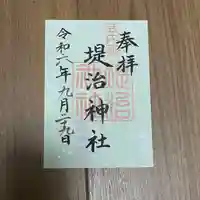 奉拝
堤治神社
令和六年九月二十九日